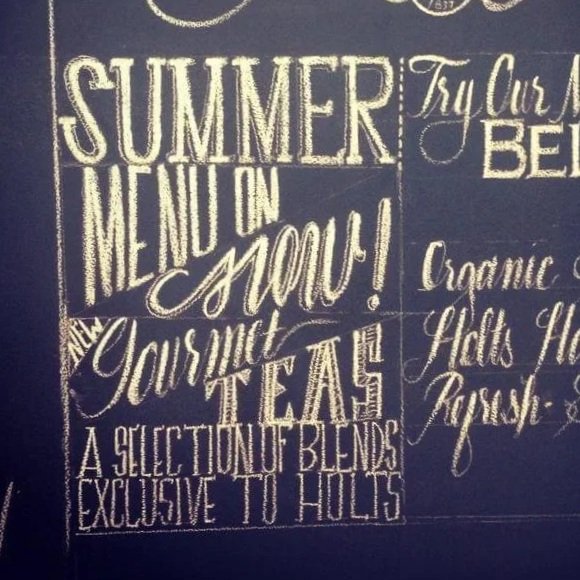 1837
SUMMER
MENU ON
now!
NEW Gourmet
TEAS
A SELECTION OF BLENDS
EXCLUSIVE TO HOLTS
Try Our
Organic
Holts
Refresh-